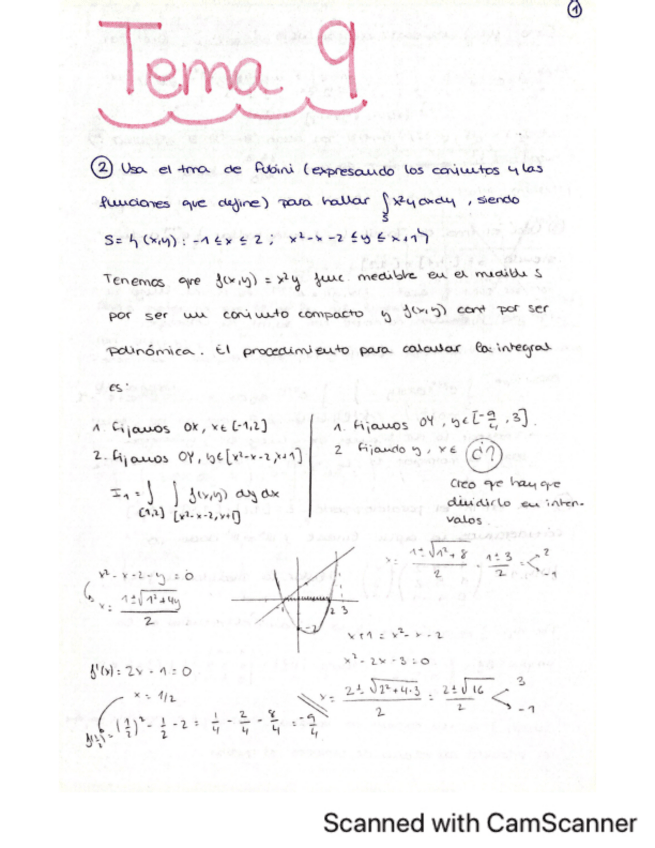 1
Tema 9
2 Usa el tma de Fubini (expresando los conjuntos y las
funciones que define) para hallar ∫_S x²y dxdy, siendo
S = {(x,y): -1 ≤ x ≤ 2; x²-x-2 ≤ y ≤ x+1}
Tenemos que f(x,y) = x²y func. medible en el medible S
por ser un conjunto compacto y f(x,y) cont por ser
polinómica. El procedimiento para calcular la integral
es:
1. Fijamos OX, x∈[-1,2]
2. Fijamos OY, y∈[x²-x-2, x+1]
I₁ = ∫ ∫ f(x,y) dy dx
[-1,2] [x²-x-2, x+1]
1. Fijamos OY, y∈[-9/4, 3].
2 Fijando y, x∈ ¿?
Creo que hay que
dividirlo en inter-
valos.
x²-x-2-y=0
x = (1±√(1²+4y))/2
-2
2 3
x = (1±√(1²+8))/2 = (1±3)/2 < 2
-1
x+1 = x²-x-2
x²-2x-3=0
x = (2±√(2²+4·3))/2 = (2±√16)/2 < 3
-1
f'(x) = 2x-1 = 0
x = 1/2
f(1/2) = (1/2)² - 1/2 - 2 = 1/4 - 2/4 - 8/4 = -9/4
Scanned with CamScanner